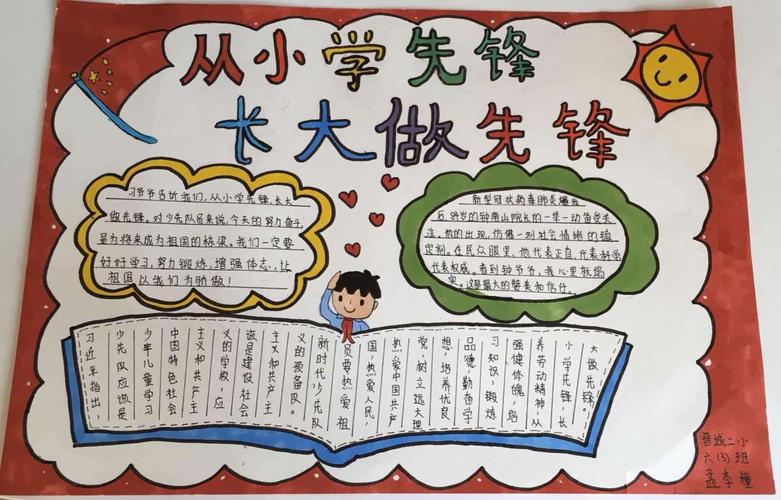 从小学先锋
长大做先锋
习爷爷告诉我们,从小学先锋,长大
做先锋。对少先队员来说,今天的努力奋斗,
是为将来成为祖国的栋梁。我们一定要
好好学习,努力锻炼,增强体志,让
祖国以我们为骄傲!
新型冠状病毒肺炎爆发
后,84岁的钟南山院长的一举一动备受关
注,他的出现,仿佛一对社会情绪的镇
定剂。在民众眼里,他代表正直,代表科学,
代表权威。看到钟爷爷,我心里就踏
实。这是最大的赞美和信任。
习近平指出,
少先队应该是
少年儿童学习
中国特色社会
主义和共产主
义的学校,应
该是建设社会
主义和共产主
义的预备队。
新时代少先队
员要热爱祖
国,热爱人民,
热爱中国共产
党,树立远大理
想,培养优良
品德,勤奋学
习知识,锻炼
强健体魄,培
养劳动精神,从
小学先锋,长
大做先锋。
晋城二小
六(3)班
孟李橦